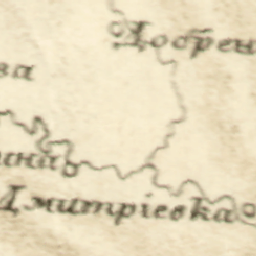 Добрен
ва
ина
Дмитріевка